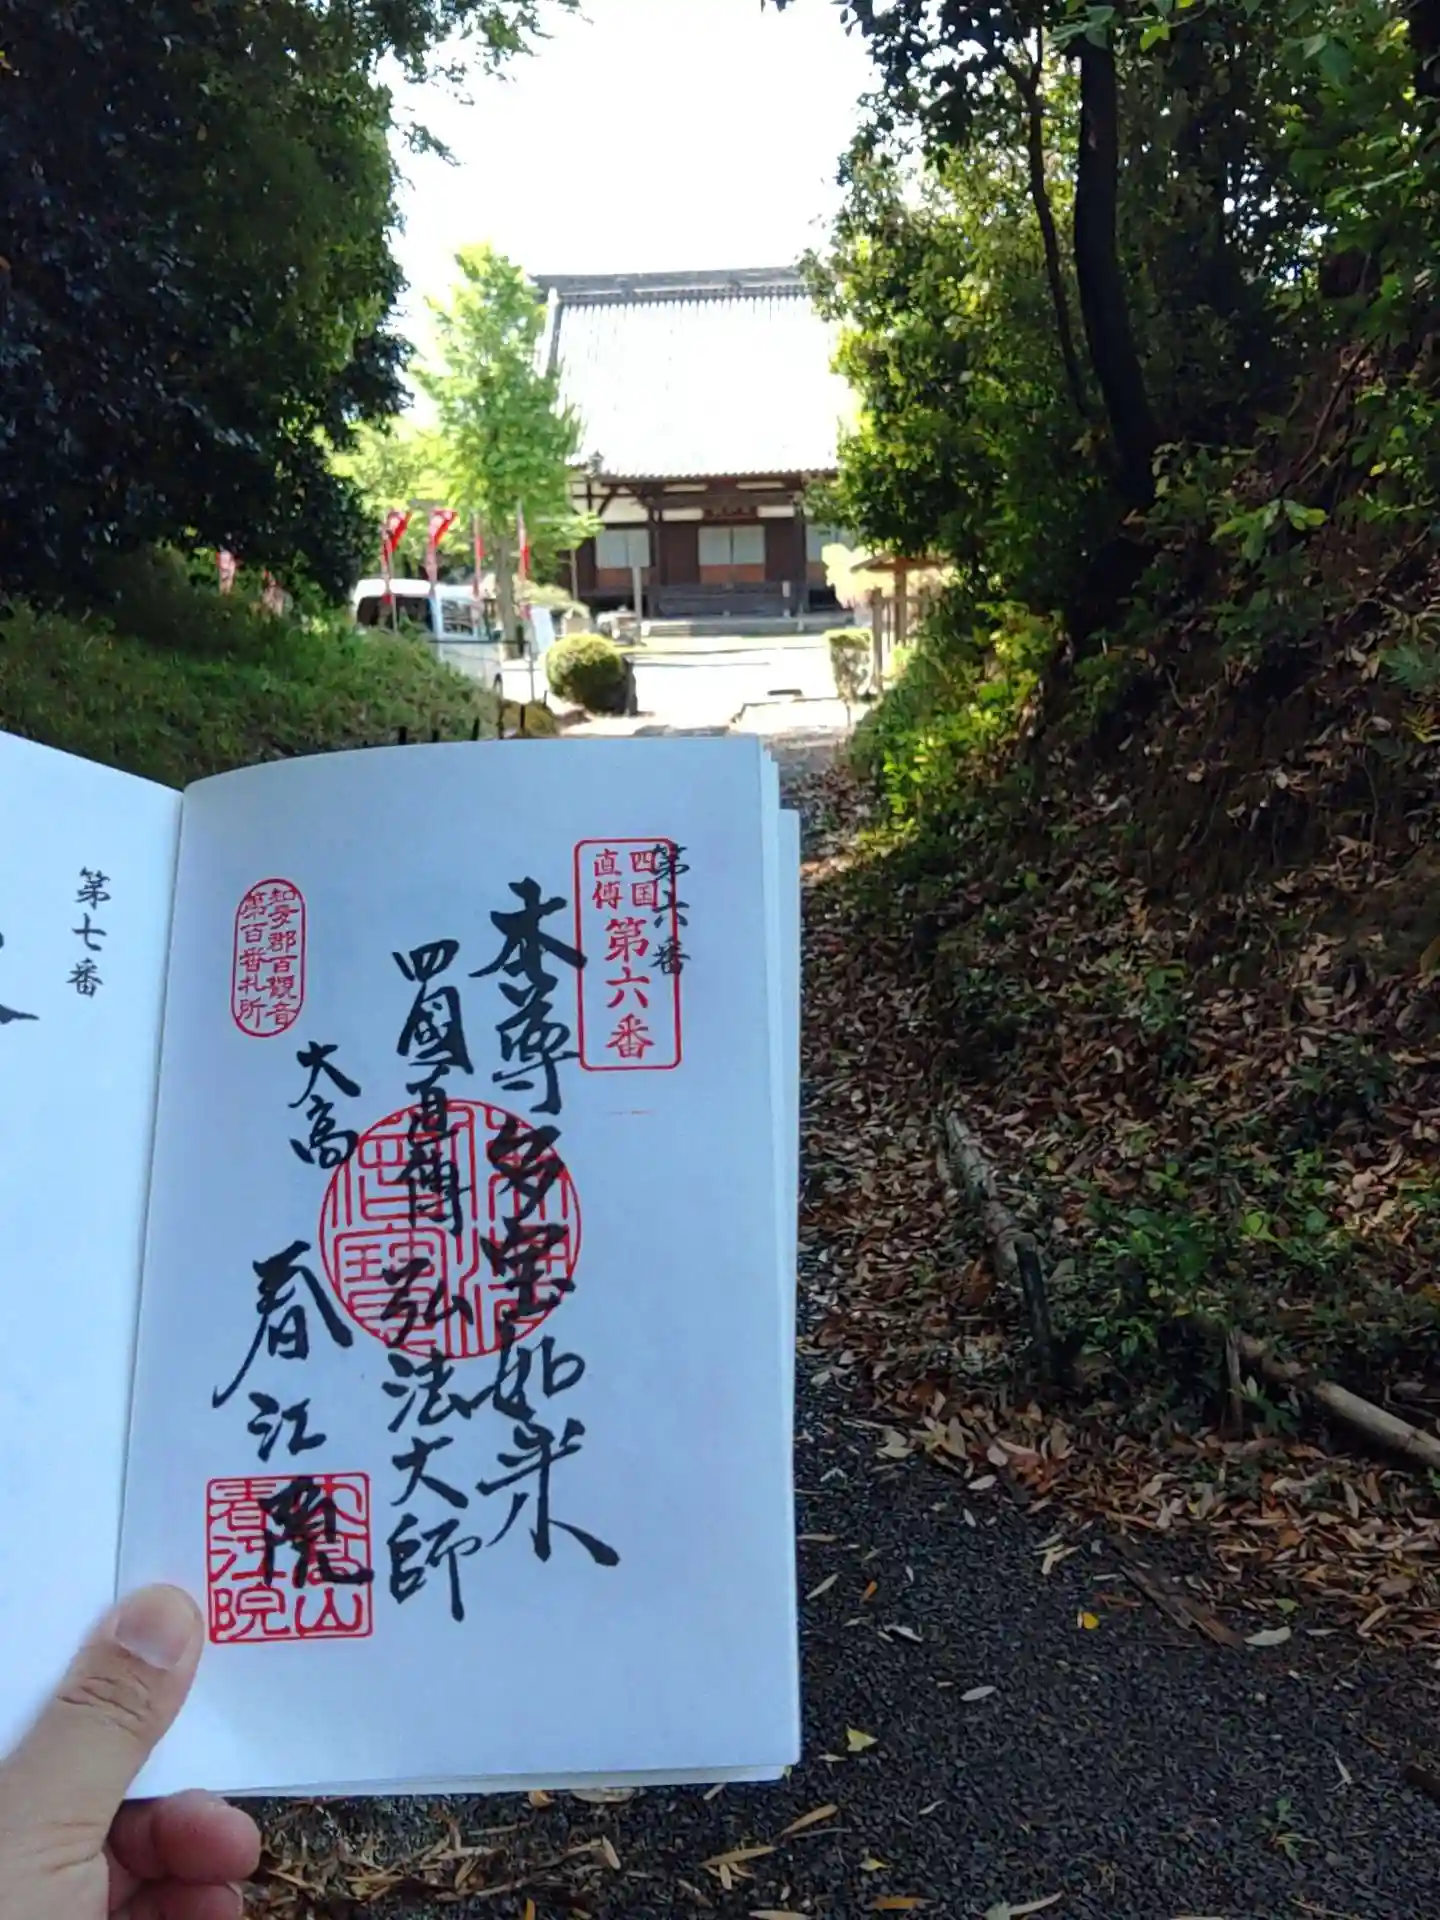 第六番
四国
直傳
第六番
本尊多宝如来
四國直傳弘法大師
大高
春江院
知多郡百観音
第百番札所
大高山
春江院
第七番